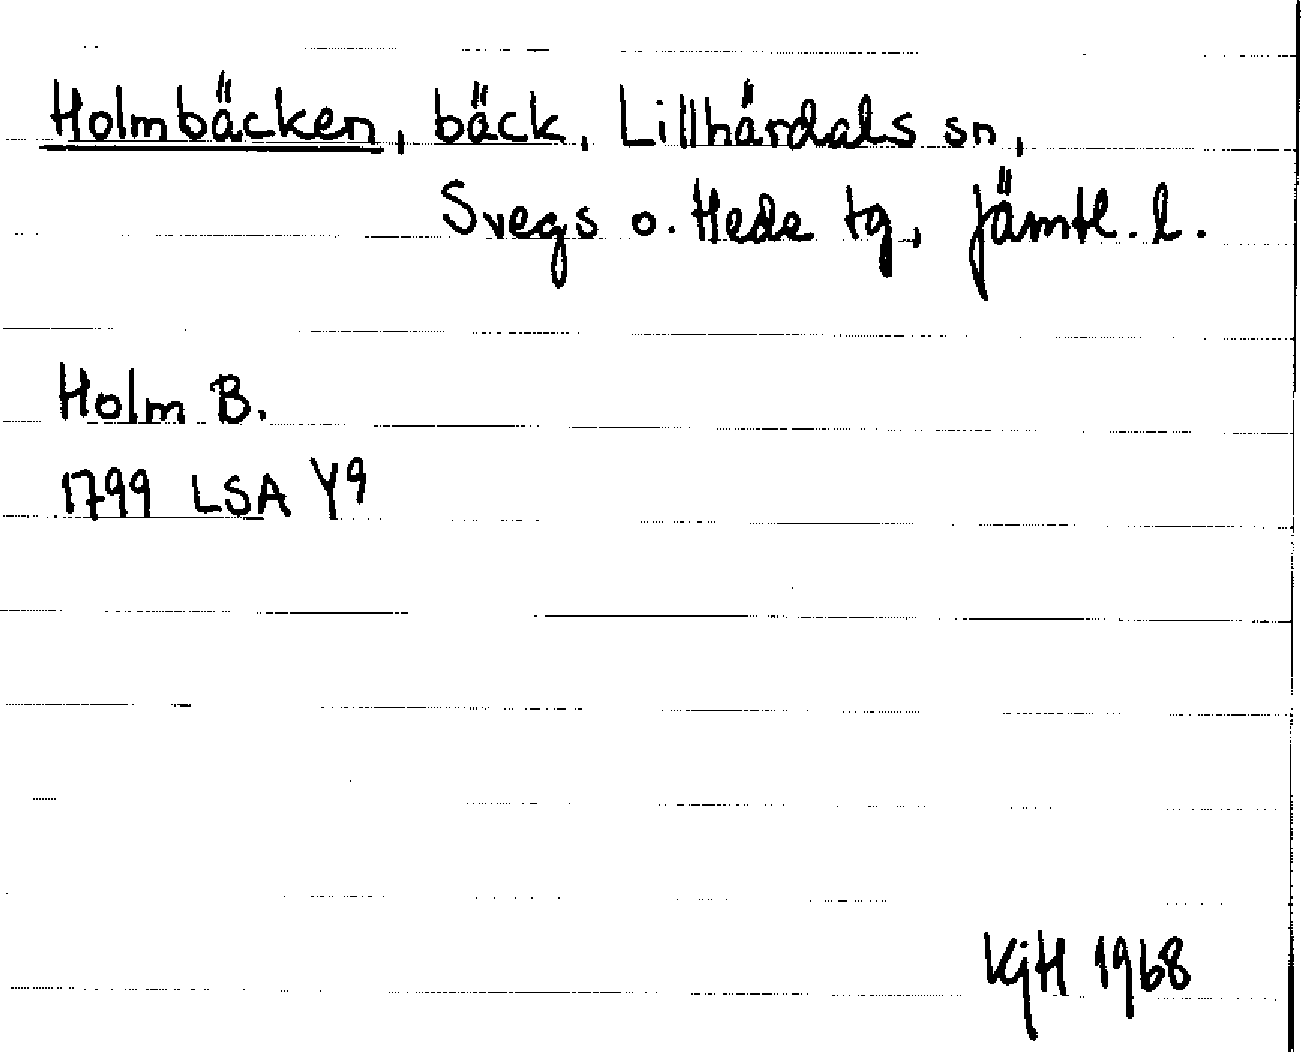 Holmbäcken, bäck, Lillhärdals sn,
Svegs o. Hede tg, Jämtl. l.
Holm B.
1799 LSA Y9
KgH 1968